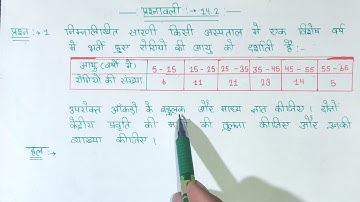 प्रश्नावली :- 14.2
प्रश्न :- 1 निम्नलिखित सारणी किसी अस्पताल में एक विशेष वर्ष
में भर्ती हुए रोगियों की आयु को दर्शाती है :-
आयु (वर्षों में) 5 - 15 15 - 25 25 - 35 35 - 45 45 - 55 55 - 65
रोगियों की संख्या 6 11 21 23 14 5
उपरोक्त आंकड़ों के बहुलक और माध्य ज्ञात कीजिए। दोनों
केंद्रीय प्रवृति की की तुलना कीजिए और उनकी
व्याख्या कीजिए।
हल :→